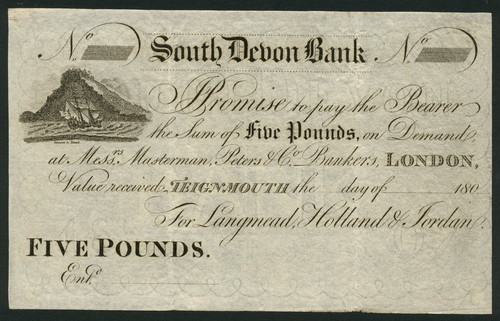 No. South Devon Bank No.
I Promise to pay the Bearer
the Sum of Five Pounds, on Demand
at Messrs. Masterman, Peters & Co. Bankers, LONDON,
Value received TEIGNMOUTH the day of 180
For Langmead, Holland & Jordan.
FIVE POUNDS.
Entd.